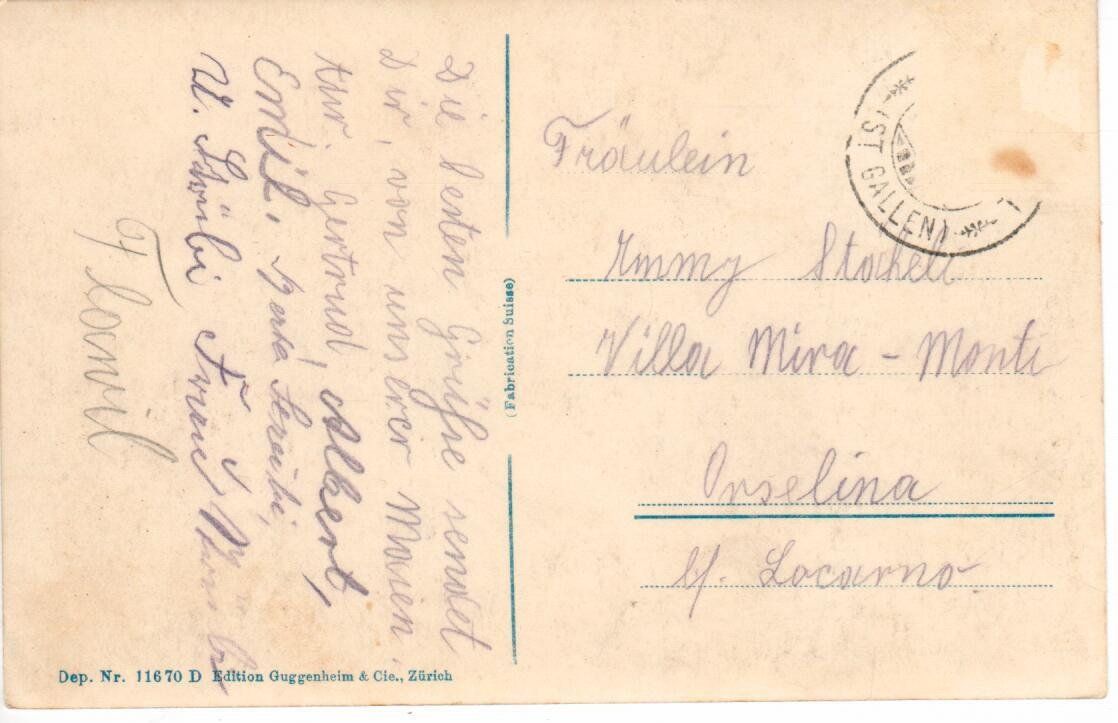 Die besten Grüsse sendet
Dir, von unserer Maien.
Gertrud, Albert,
Emil,
Frau
Flawil
(Fabrication Suisse)
Fräulein
Emmy
Villa Mira - Monti
Orselina
b/. Locarno
(ST. GALLEN)
Dep. Nr. 11670 D Edition Guggenheim & Cie., Zürich